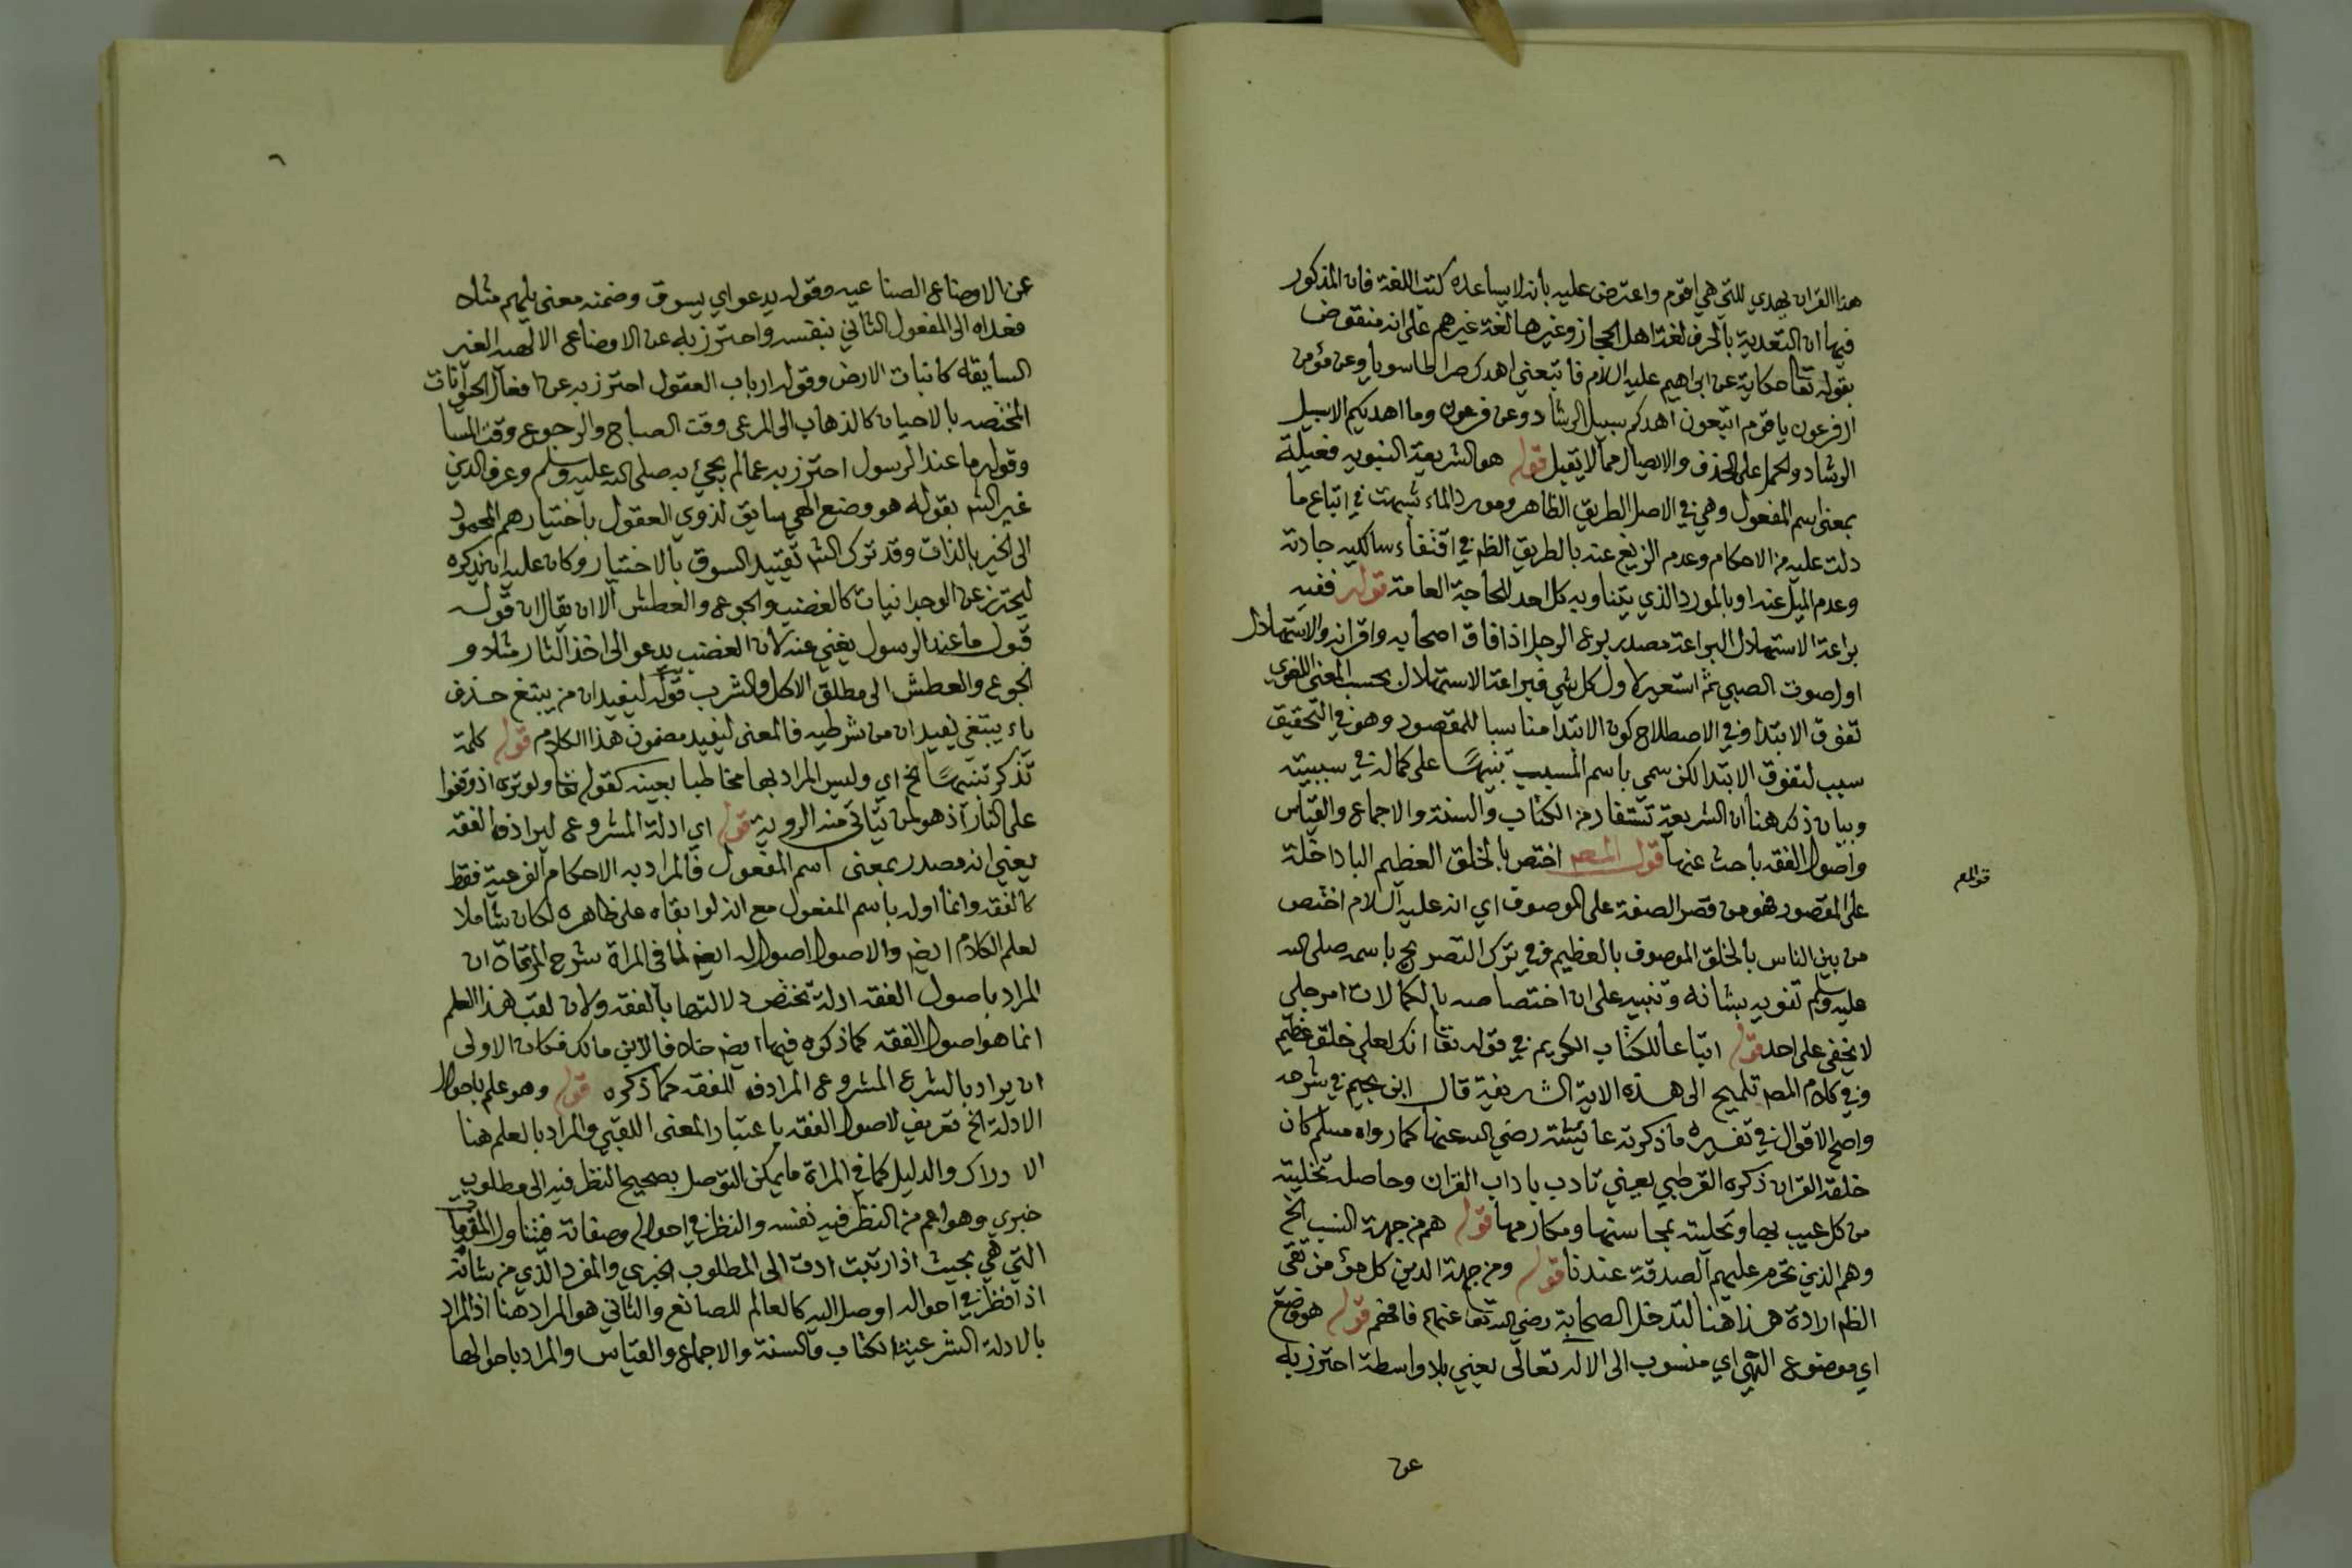 هذا القران يهدي للتي هي اقوم واعترض عليه بانه لا يساعده كتب اللغة فان المذكور
فيها ان التعدية بالحرف لغة اهل الحجاز وغيرها لغة غيرهم على انه منقوض
بقوله تعا حكاية عن ابراهيم عليه السلام فاتبعني اهدك صراطا سويا وعن مؤمن
ال فرعون يا قوم اتبعون اهدكم سبيل الرشاد وعن فرعون وما اهديكم الا سبيل
الرشاد والحمل على الحذف والايصال مما لا يقبل قوله هو الشريعة النبويه فعيلة
بمعنى اسم المفعول وهي في الاصل الطريق الظاهر ومورد الماء شبهت في اتباع ما
دلت عليه من الاحكام وعدم الزيغ عنه بالطريق الظم في اقتفاء سالكيه جادته
وعدم الميل عنه او بالمورد الذي يتناوبه كل احد للحاجة العامة قوله ففيه
براعة الاستهلال البراعة مصدر برع الرجل اذا فاق اصحابه واقرانه والاستهلال
اول صوت الصبي ثم استعير لاول كل شي فبراعة الاستهلال بحسب المعنى اللغوي
تفوق الابتدا وفي الاصطلاح كون الابتدا مناسبا للمقصود وهو في التحقيق
سبب لتفوق الابتدا لكن سمي باسم المسبب تنبيهًا على كماله في سببيته
وبيان ذلك هنا ان الشريعة تستفاد من الكتاب والسنة والاجماع والقياس
واصول الفقه باحث عنها قول المصـ اختص بالخلق العظيم البا داخلة
قوالم
على المقصور فهو من قصر الصفة على الموصوف اي انه عليه السلام اختص
من بين الناس بالخلق الموصوف بالعظيم وفي ترك التصريح باسمه صلى الله
عليه وسلم تنويه بشانه وتنبيه على ان اختصاصه بالكمالات امر جلي
لا يخفى على احد قوله اتباعا للكتاب الكريم في قوله تعا انك لعلى خلق عظيم
وفي كلام المصـ تلميح الى هذه الاية الشريفة قال ابن نجيم في شرحه
واصح الاقوال في تفسيره ما ذكرته عائشة رضي الله عنها كما رواه مسلم كان
خلقه القران ذكره القرطبي يعني تادب باداب القران وحاصله تخليته
من كل عيب بها وتحليته بمحاسنها ومكارمها قوله هم من جهة النسب الخ
وهم الذين تحرم عليهم الصدقة عندنا قوله ومن جهة الدين كل مؤمن تقى
الظم ارادة هذا هنا لتدخل الصحابة رضي الله تعا عنهم فافهم قوله هو وضع
اي موضوع الهي اي منسوب الى الاله تعالى يعني بلا واسطة احترز به
عن
٦
عن الاوضاع الصناعيه وقوله يدعو اي يسوق وضمنه معنى يلهم مثلا
فعداه الى المفعول الثاني بنفسه واحترز به عن الاوضاع الالهيه الغير
السايقه كانبات الارض وقوله ارباب العقول احترز به عن افعال الحيوانات
المختصه بالاحيان كالذهاب الى المرعى وقت الصباح والرجوع وقت المسا
وقوله ما عند الرسول احترز به عما لم يجئ به صلى الله عليه وسلم وعرف الدين
غير الشه بقوله هو وضع الهي سايق لذوي العقول باختيارهم المحمود
الى الخير بالذات وقد ترك الشه تقييد السوق بالاختيار وكان عليه ان يذكره
ليحترز عن الوجدانيات كالغضب والجوع والعطش الا ان يقال ان قوله
قبول ما عند الرسول يغني عنه لان الغضب يدعو الى اخذ الثار مثلا و
الجوع والعطش الى مطلق الاكل والشرب قوله ليفيد ان من يبتغ حذف
ياء يبتغي يفيد ان من شرطيه فالمعنى ليفيد مضمون هذا الكلام قوله كلمة
تذكر تنبيهًا الخ اي وليس المراد بها مخاطبا بعينه كقوله تعا ولو ترى اذ وقفوا
على النار اذ هو لمن يتاتى منه الروية قوله اي ادلة المشروع ليرادف الفقه
يعني انه مصدر بمعنى اسم المفعول فالمراد به الاحكام الفرعية فقط
كالفقه وانما اوله باسم المفعول مع انه لو ابقاه على ظاهره لكان شاملا
لعلم الكلام ايضـ والاصول اصول له ايضـ لما في المراة شرح المرقاة ان
المراد باصول الفقه ادلة تختص دلالتها بالفقه ولان لقب هذا العلم
انما هو اصول الفقه كما ذكره فيها ايضـ خلافا لابن مالك فكان الاولى
ان يراد بالشرع المشروع المرادف للفقه كما ذكره قوله وهو علم باحوال
الادلة الخ تعريف لاصول الفقه باعتبار المعنى اللقبي والمراد بالعلم هنا
الادراك والدليل كما في المراة ما يمكن التوصل بصحيح النظر فيه الى مطلوب
خبري وهو اعم من النظر فيه نفسه والنظر في احواله وصفاته فيتناول المقدمات
التي هي بحيث اذا رتبت ادت الى المطلوب الخبري والمفرد الذي من شانه
اذا نظر في احواله اوصل اليه كالعالم للصانع والثاني هو المراد هنا اذ المراد
بالادلة الشرعية الكتاب والسنة والاجماع والقياس والمراد باحوالها